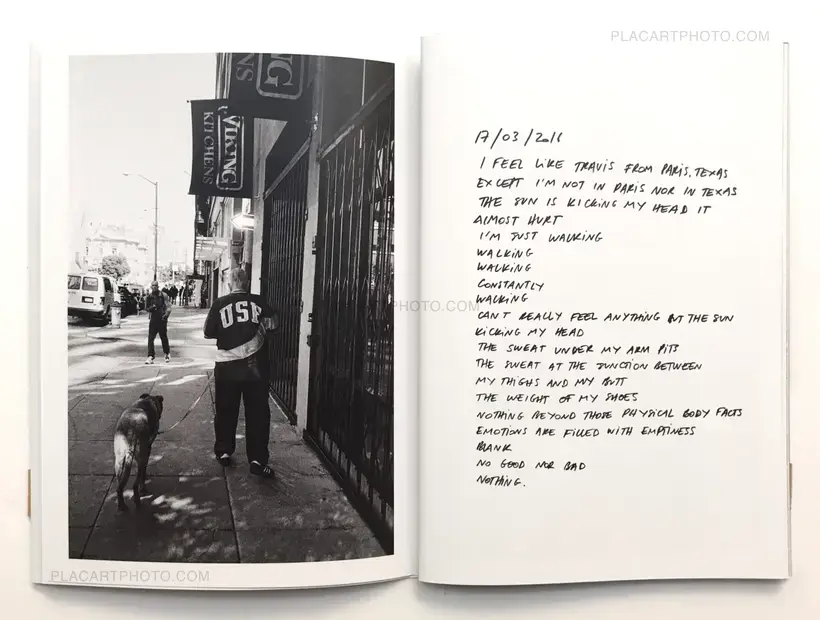 PLACARTPHOTO.COM
VIKING
KITCHENS
USA
17/03/2016
I FEEL LIKE TRAVIS FROM PARIS, TEXAS
EXCEPT I'M NOT IN PARIS NOR IN TEXAS
THE SUN IS KICKING MY HEAD IT
ALMOST HURT
I'M JUST WALKING
WALKING
WALKING
CONSTANTLY
WALKING
CAN'T REALLY FEEL ANYTHING BUT THE SUN
KICKING MY HEAD
THE SWEAT UNDER MY ARM PITS
THE SWEAT AT THE JUNCTION BETWEEN
MY THIGHS AND MY BUTT
THE WEIGHT OF MY SHOES
NOTHING BEYOND THOSE PHYSICAL BODY FACTS
EMOTIONS ARE FILLED WITH EMPTINESS
BLANK
NO GOOD NOR BAD
NOTHING.
PLACARTPHOTO.COM